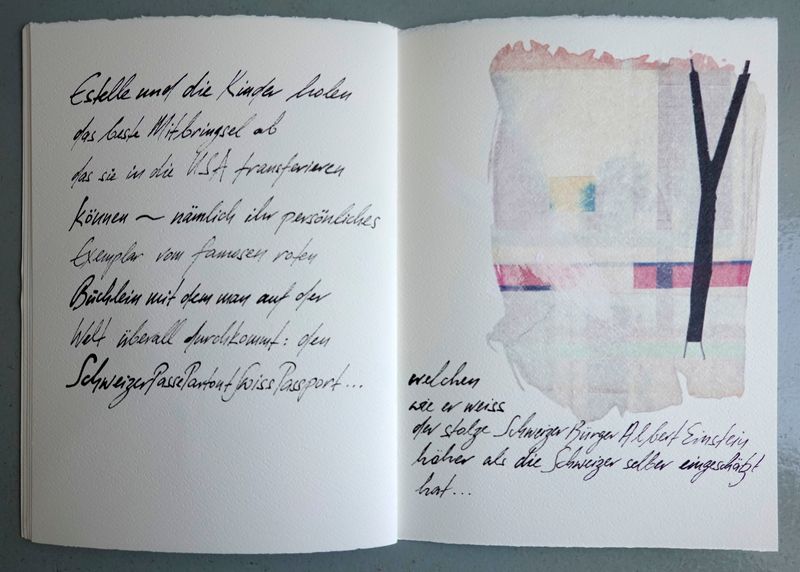 Estelle und die Kinder holen
das beste Mitbringsel ab
das sie in die USA transferieren
können ~ nämlich ihr persönliches
Exemplar vom famosen roten
Büchlein mit dem man auf der
Welt überall durchkommt: den
SchweizerPassePartoutSwissPassport...
welchen
wie er weiss
der stolze Schweizer Bürger Albert Einstein
höher als die Schweizer selber eingeschätzt
hat...